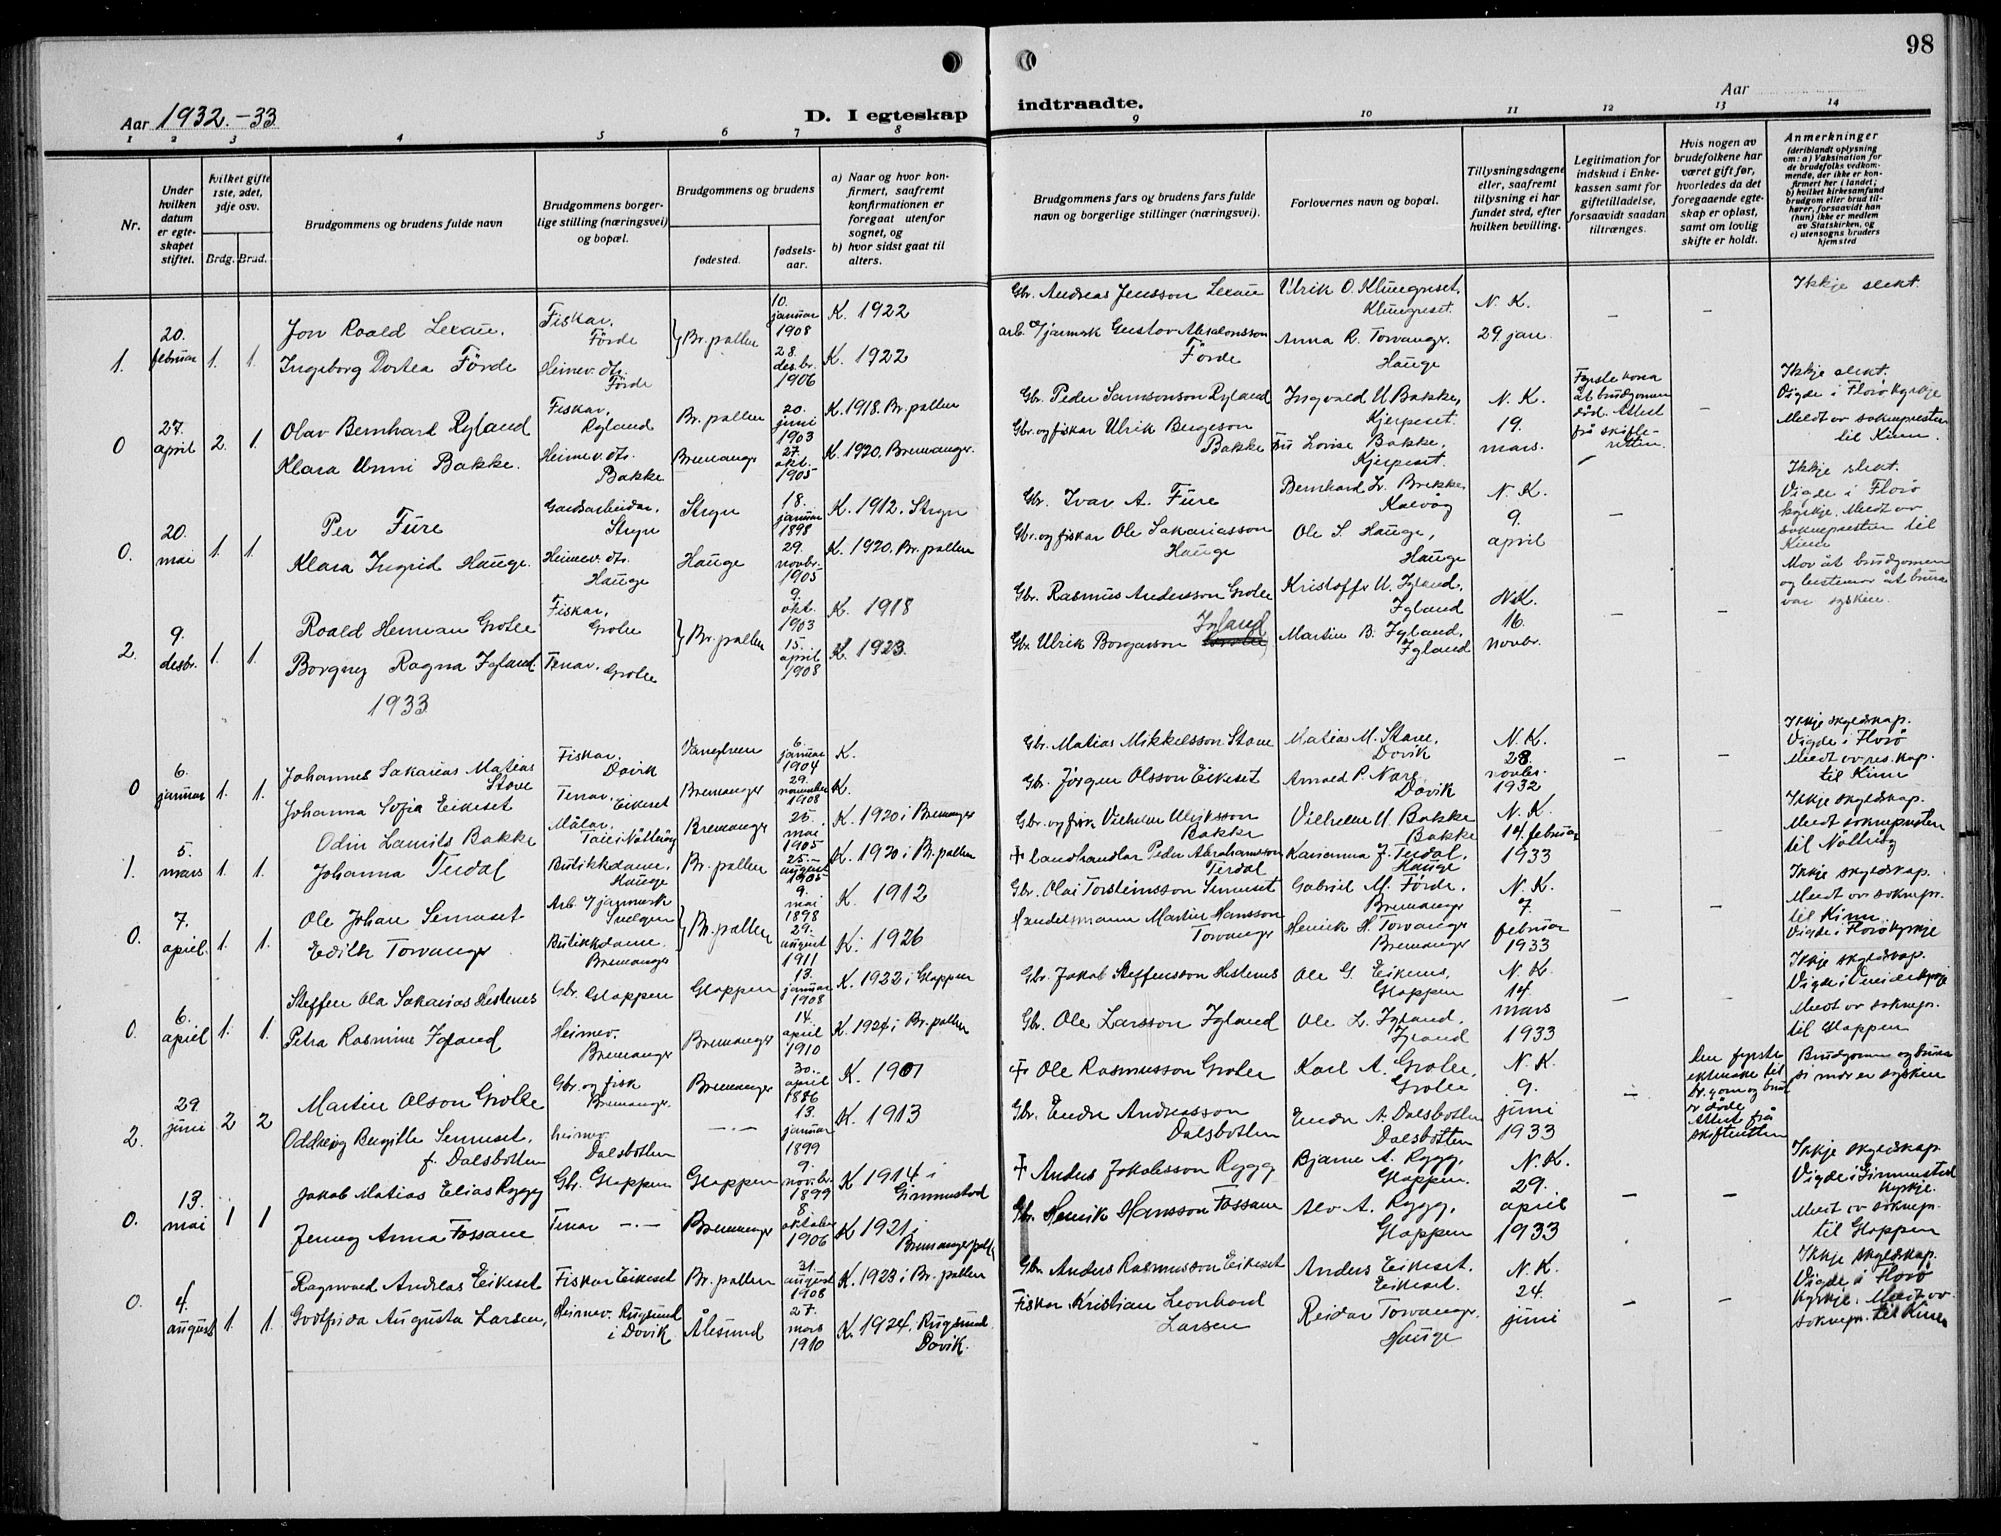 98
Aar 1932.-33.
D. I egteskap
indtraadte.
Aar
1 2 3 4 5 6 7 8 9 10 11 12 13 14
Nr.
Under hvilken datum er egteskapet stiftet.
hvilket gifte 1ste, 2det, 3dje osv.
Brdg. Brud.
Brudgommens og brudens fulde navn
Brudgommens borgerlige stilling (næringsvei) og bopæl.
Brudgommens og brudens
fødested.
fødselsaar.
a) Naar og hvor konfirmert, saafremt konfirmationen er foregaat utenfor sognet, og
b) hvor sidst gaat til alters.
Brudgommens fars og brudens fars fulde navn og borgerlige stillinger (næringsvei).
Forlovernes navn og bopæl.
Tillysningsdagene eller, saafremt tillysning ei har fundet sted, efter hvilken bevilling.
Legitimation for indskud i Enkekassen samt for giftetilladelse, forsaavidt saadan tiltrænges.
Hvis nogen av brudefolkene har været gift før, hvorledes da det foregaaende egteskap er opløst, samt om lovlig skifte er holdt.
Anmerkninger
(deriblandt oplysning om: a) Vaksination for de brudefolks vedkommende, der ikke er konfirmert her i landet; b) hvilket kirkesamfund brudgom eller brud tilhører, forsaavidt han (hun) ikke er medlem av Statskirken, og c) utensogns bruders hjemsted
1. 20. februar 1. 1.
Jon Roald Lexau. Fiskar, Förde Br. pollen 10. januar 1908 K. 1922
Gbr. Andreas Jensson Lexau Ulrik O. Klungreset, Klungreset. N. K. – – Ikkje slekt.
Ingeborg Dortea Förde Heimev. dtr. Förde 28. des.br. 1906 K. 1922
arb. v/jarnverk Gustav Absalonsson Förde Anna R. Torvanger. Hauge 29. jan.
0 27. april 2. 1.
Olav Bernhard Ryland Fiskar, Ryland Br. pollen 20. juni 1903 K. 1918. Br. pollen
Gbr. Peder Samsonson Ryland Ingvald U. Bakke, Kjerpeset. N. K. Fyrste kona åt brudgomen död. Attest frå skifteretten. – Ikkje slekt. Vigde i Florö kyrkje
Klara Unni Bakke. Heimev. dtr. Bakke Bremanger 27. okt. 1905 K. 1920. Bremanger.
Gbr. og fiskar Ulrik Bergeson Bakke Lovise Bakke, Kjerpeset. 19. mars. Meldt av soknepresten til Kinn.
0. 20. mai 1. 1.
Per Füre Gardsarbeidar, Stryn Stryn 18. januar 1898 K. 1912. Stryn
Gbr. Ivar A. Füre Bernhard L. Brekke, Kalvåg N. K. – Ikkje slekt. Vigde i Florö kyrkje. Meldt av soknepresten til Kinn
Klara Ingrid Hauge. Heimev. dtr. Hauge Hauge 29. novbr. 1905 K. 1920. Br. pollen
Gbr. og fiskar Ole Sakariasson Hauge Ole S. Hauge, Hauge 9. april
2. 9. desbr. 1. 1.
Roald Herman Grotle Fiskar, Grotle Br. pollen 9. okt. 1903 K. 1918
Gbr. Rasmus Andersson Grotle Kristoffer U. Igland, Igland N. K. – – Mor åt brudgomen og bestemor åt brura var sysken.
Borgny Ragna Igland Tenar, Grotle 15. april 1908 K. 1923.
Gbr. Ulrik Borgarsson Igland Martin B. Igland, Igland 16. novbr.
1933
0 6. januar 1. 1.
Johannes Sakarias Matias Stave Fiskar, Davik Vanylven 6. januar 1904 K.
Gbr. Matias Mikkelsson Stave Matias M. Stave, Davik N. K. – – Ikkje skyldskap. Vigde i Florö Meldt av res. kap. til Kinn
Johanna Sofia Eikeset Tenar, Eikeset Bremanger 29. november 1908 K.
Gbr. Jörgen Olsson Eikeset Arnold P. Nave Davik 28. novbr. 1932
1. 5. mars 1. 1.
Odin Laurits Bakke Målar, Bremanger 25. mai 1905 K. 1920 i Bremanger
Gbr. og fisk Vilhelm Ulriksson Bakke Vilhelm U. Bakke Bakke N. K. Ikkje skyldskap. Meldt soknepresten til Nötteröy
Johanna Terdal Butikkdame, Hauge Br. pollen 25. august 1905 K. 1920 i Br. pollen
+ landhandlar Peder Abrahamsson Terdal Karianna J. Terdal, Hauge 14. februar 1933
0. 7. april. 1. 1.
Ole Johan Semeset. Arb. v/jarnverk Svelgen Br. pollen 9. mai 1898 K. 1912
Gbr. Olai Torsteinsson Semeset Gabriel M. Förde. Bremanger N. K. – – Ikkje skyldskap. Meldt av soknepr. til Kinn Vigde i Florö kyrkje
Edith Torvanger Butikkdame. Bremanger 29. august 1911 K. 1926
Handelsmann Martin Hansson Torvanger Henrik H. Torvanger Bremanger 7. februar 1933
0. 6. april 1. 1.
Steffen Ola Sakarias Hestenes Gbr. Gloppen Gloppen 13. januar 1908 K. 1922 i Gloppen
Gbr. Jakob Steffensson Hestenes Ole G. Eikenes, Gloppen N. K. – – Ikkje skyldskap. Vigde i Vereide kyrkje Meldt av soknepr. til Gloppen
Petra Rasmine Igland Heimev. Bremanger Bremanger 14. april 1910 K. 1924 i Br. pollen
Gbr. Ole Larsson Igland Ole L. Igland, Igland 14. mars 1933
2. 29. juni 2 2
Martin Olson Grotle Gbr. og fisk Bremanger. Bremanger 30. april 1886 K. 1901
+ Ole Rasmusson Grotle Karl A. Grotle, Grotle N. K. – Den fyrste ektemake til br.gom og brud er döde Attest frå skifteretten Brudgomen og brura si mor er sysken
Oddbjörg Birgitte Semeset, f. Dalsbotten heimev. Dalsbotten –·– 13. januar 1899 K. 1913
Gbr. Endre Andreasson Dalsbotten Endre A. Dalsbotten Dalsbotten 9. juni 1933
0. 13. mai 1 1
Jakob Matias Elias Rygg Gbr. Gloppen Gloppen 9. nov.br. 1899 K 1914 i Gimmestad
+ Anders Jakobsson Rygg Bjarne A. Rygg, Gloppen. N. K. – – Ikkje skyldskap Vigde i Gimmestad kyrkje. Meldt av soknepr. til Gloppen
Jenny Anna Fossane Tenar –·– Bremanger 8. oktober 1906 K 1921 i Bremangerpoll
Gbr. Henrik Hansson Fossane Alv A. Rygg, Gloppen 29. april 1933
0. 4. august 1. 1.
Ragnvald Andreas Eikeset Fiskar Eikeset Br. pollen 31. august 1908 K. 1923 i Br. pollen
Gbr. Anders Rasmusson Eikeset Anders Eikeset. Eikeset. N. K. – – Ikkje skyldskap. Vigde i Florö kyrkje. Meldt av soknepr. til Kinn
Godtfrida Augusta Larsen, Heimev. Rugsund i Davik Ålesund 27. mars 1910 K. 1924, Rugsund Davik.
Fiskar Kristian Leonhard Larsen Reidar Torvanger. Hauge 24. juni